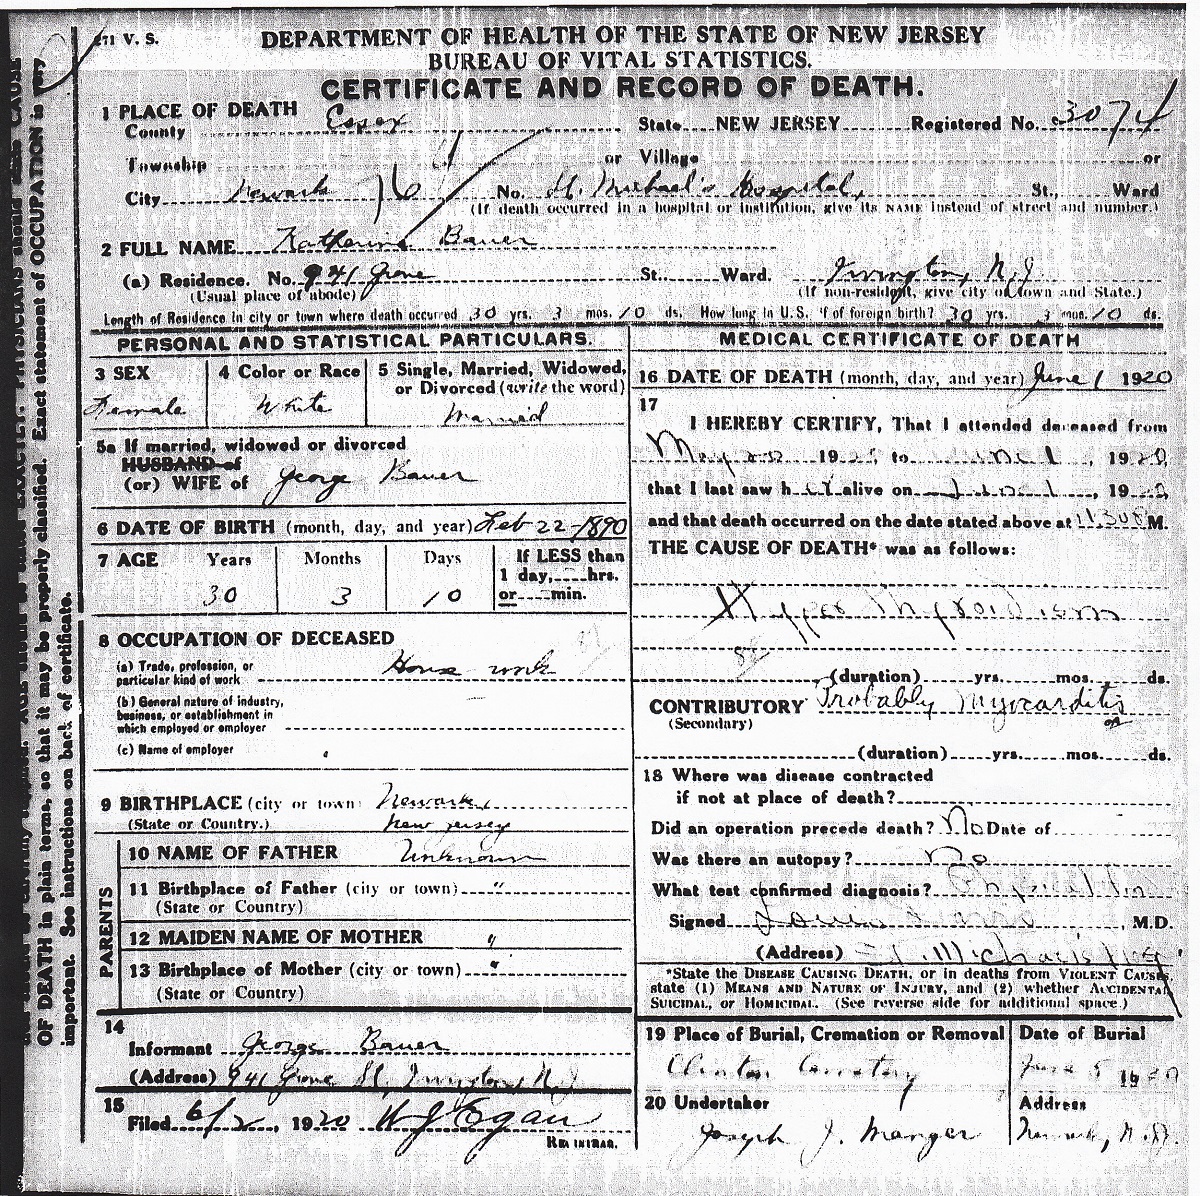 V. S.
DEPARTMENT OF HEALTH OF THE STATE OF NEW JERSEY
BUREAU OF VITAL STATISTICS.
CERTIFICATE AND RECORD OF DEATH.
1 PLACE OF DEATH
County Essex State NEW JERSEY Registered No. 3074
Township or Village or
City Newark 76 No. St. Michael's Hospital, St., Ward
(If death occurred in a hospital or institution, give its NAME instead of street and number.)
2 FULL NAME Katherine Bauer
(a) Residence. No. 941 Grove St. Ward. Irvington, N.J.
(Usual place of abode) (If non-resident, give city or town and State.)
Length of Residence in city or town where death occurred 30 yrs. 3 mos. 10 ds. How long in U.S. if of foreign birth? 30 yrs. 3 mos. 10 ds.
PERSONAL AND STATISTICAL PARTICULARS.
3 SEX
Female
4 Color or Race
White
5 Single, Married, Widowed, or Divorced (write the word)
Married
5a If married, widowed or divorced
HUSBAND of
(or) WIFE of George Bauer
6 DATE OF BIRTH (month, day, and year) Feb 22-1890
7 AGE Years Months Days If LESS than
1 day, hrs.
30 3 10 or min.
8 OCCUPATION OF DECEASED
(a) Trade, profession, or
particular kind of work House work
(b) General nature of industry,
business, or establishment in
which employed or employer
(c) Name of employer
9 BIRTHPLACE (city or town) Newark,
(State or Country.) New Jersey
PARENTS
10 NAME OF FATHER Unknown
11 Birthplace of Father (city or town) "
(State or Country)
12 MAIDEN NAME OF MOTHER "
13 Birthplace of Mother (city or town) "
(State or Country)
14
Informant George Bauer
(Address) 941 Grove St. Irvington, N.J.
15
Filed 6/2, 1920 W J Egan
REGISTRAR.
MEDICAL CERTIFICATE OF DEATH
16 DATE OF DEATH (month, day, and year) June 1 1920
17
I HEREBY CERTIFY, That I attended deceased from
May 1920, to June 1, 1920,
that I last saw her alive on June 1, 1920,
and that death occurred on the date stated above at M.
THE CAUSE OF DEATH* was as follows:
Hyper Thyroidism
(duration) yrs. mos. ds.
CONTRIBUTORY Probably Myocarditis
(Secondary)
(duration) yrs. mos. ds.
18 Where was disease contracted
if not at place of death?
Did an operation precede death? No Date of
Was there an autopsy? No
What test confirmed diagnosis?
Signed Louis M.D.
(Address) St. Michael's Hosp
*State the DISEASE CAUSING DEATH, or in deaths from VIOLENT CAUSES,
state (1) MEANS AND NATURE OF INJURY, and (2) whether ACCIDENTAL
SUICIDAL, or HOMICIDAL. (See reverse side for additional space.)
19 Place of Burial, Cremation or Removal
Clinton Cemetery
Date of Burial
June 5 1920
20 Undertaker
Joseph J. Manger
Address
Newark, N.J.
Exact statement of OCCUPATION is very
OF DEATH in plain terms, so that it may be properly classified.
important. See instructions on back of certificate.